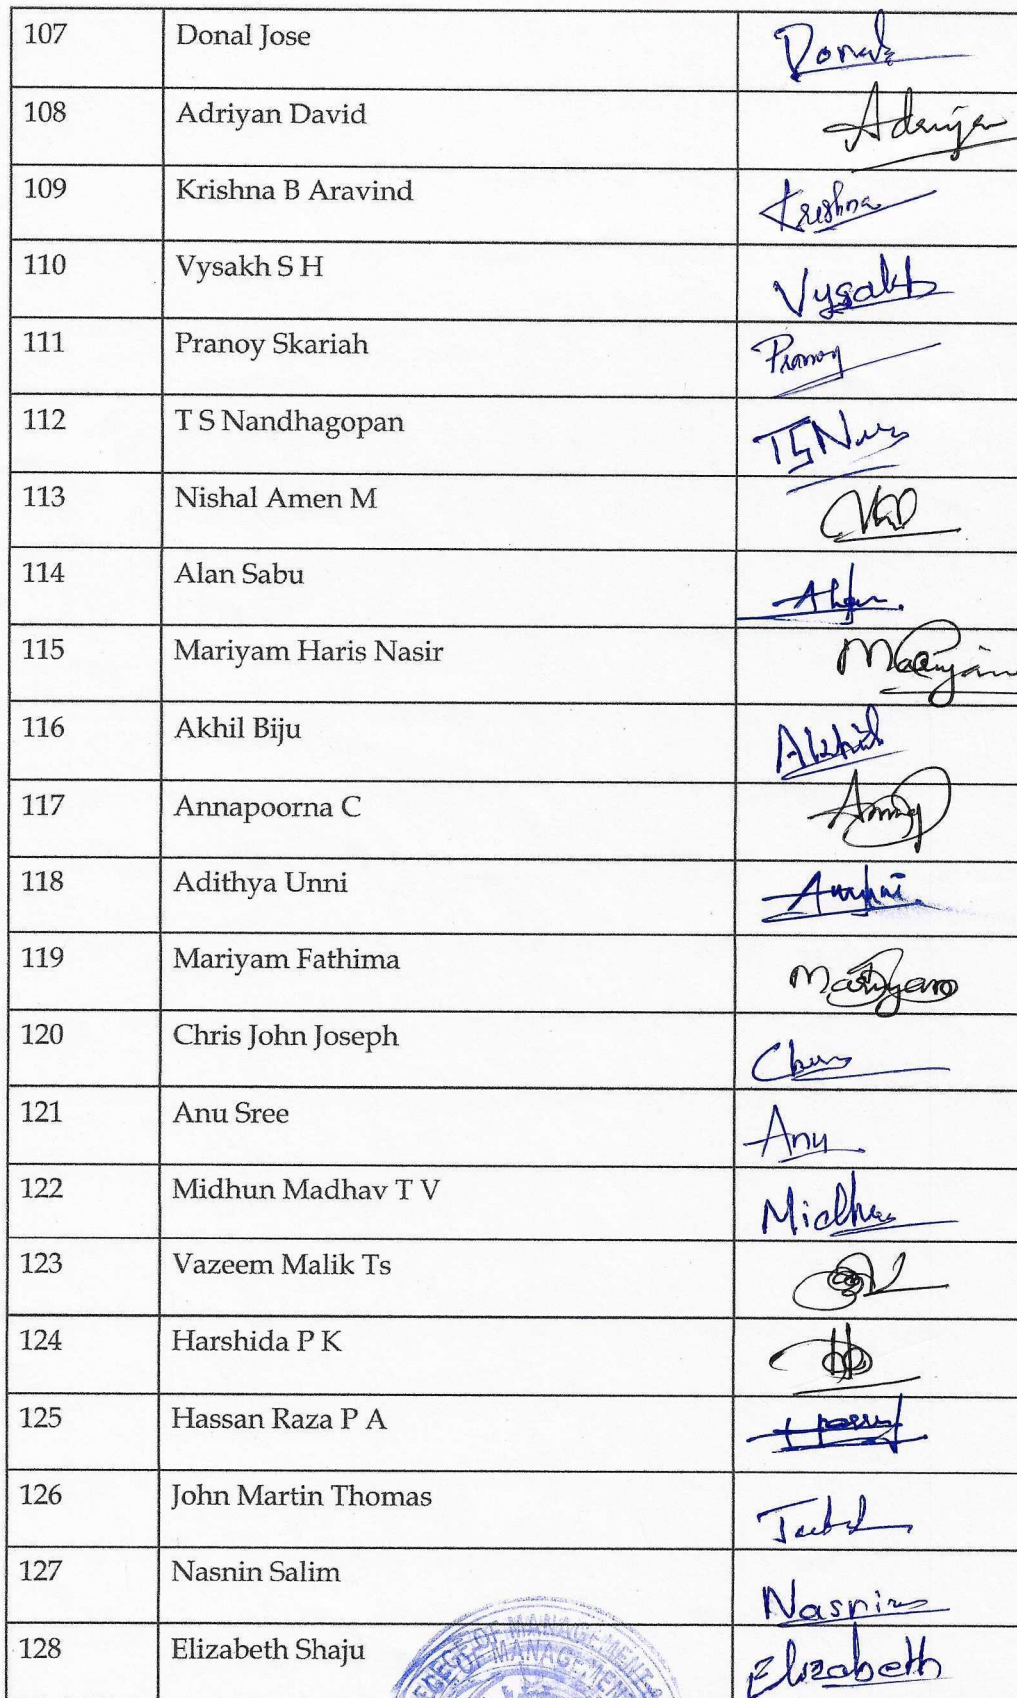 107 Donal Jose Donal
108 Adriyan David Adriyan
109 Krishna B Aravind Krishna
110 Vysakh S H Vysakh
111 Pranoy Skariah Pranoy
112 T S Nandhagopan
113 Nishal Amen M
114 Alan Sabu
115 Mariyam Haris Nasir Mariyam
116 Akhil Biju Akhil
117 Annapoorna C
118 Adithya Unni
119 Mariyam Fathima Mariyam
120 Chris John Joseph Chris
121 Anu Sree Anu
122 Midhun Madhav T V Midhun
123 Vazeem Malik Ts
124 Harshida P K
125 Hassan Raza P A
126 John Martin Thomas
127 Nasnin Salim Nasnin
128 Elizabeth Shaju Elizabeth
OF MANAGEMENT
OF MANAGEMENT